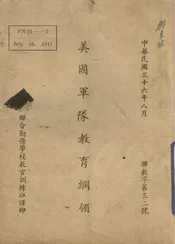 FM 21—5
July 16, 1941
中華民國三十六年八月
聯教字第三二號
美國軍隊教育綱領
聯合勤務學校教官訓練班譯印